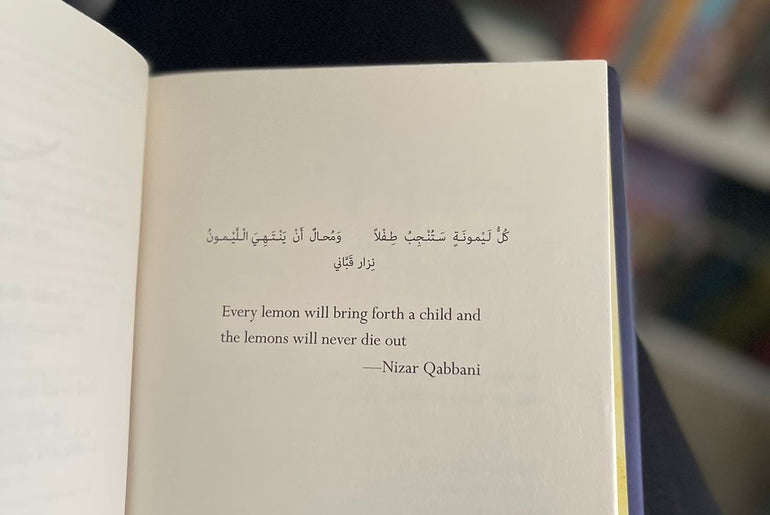 كُلُّ لَيْمونَةٍ سَتُنْجِبُ طِفْلاً وَمُحالٌ أَنْ يَنْتَهِيَ الْلَّيْمونُ
نِزار قَبَّاني
Every lemon will bring forth a child and
the lemons will never die out
—Nizar Qabbani